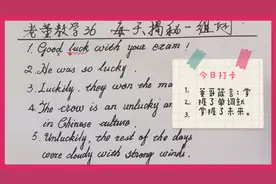 老董教学36 每天揭秘一组词
1. Good luck with your exam!
2. He was so lucky.
3. Luckily, they won the ma
4. The crow is an unlucky an
in Chinese culture.
5. Unluckily, the rest of the days
were cloudy with strong winds.
今日打卡
1. 董哥箴言：掌
2. 握了单词就
3. 掌握了未来。